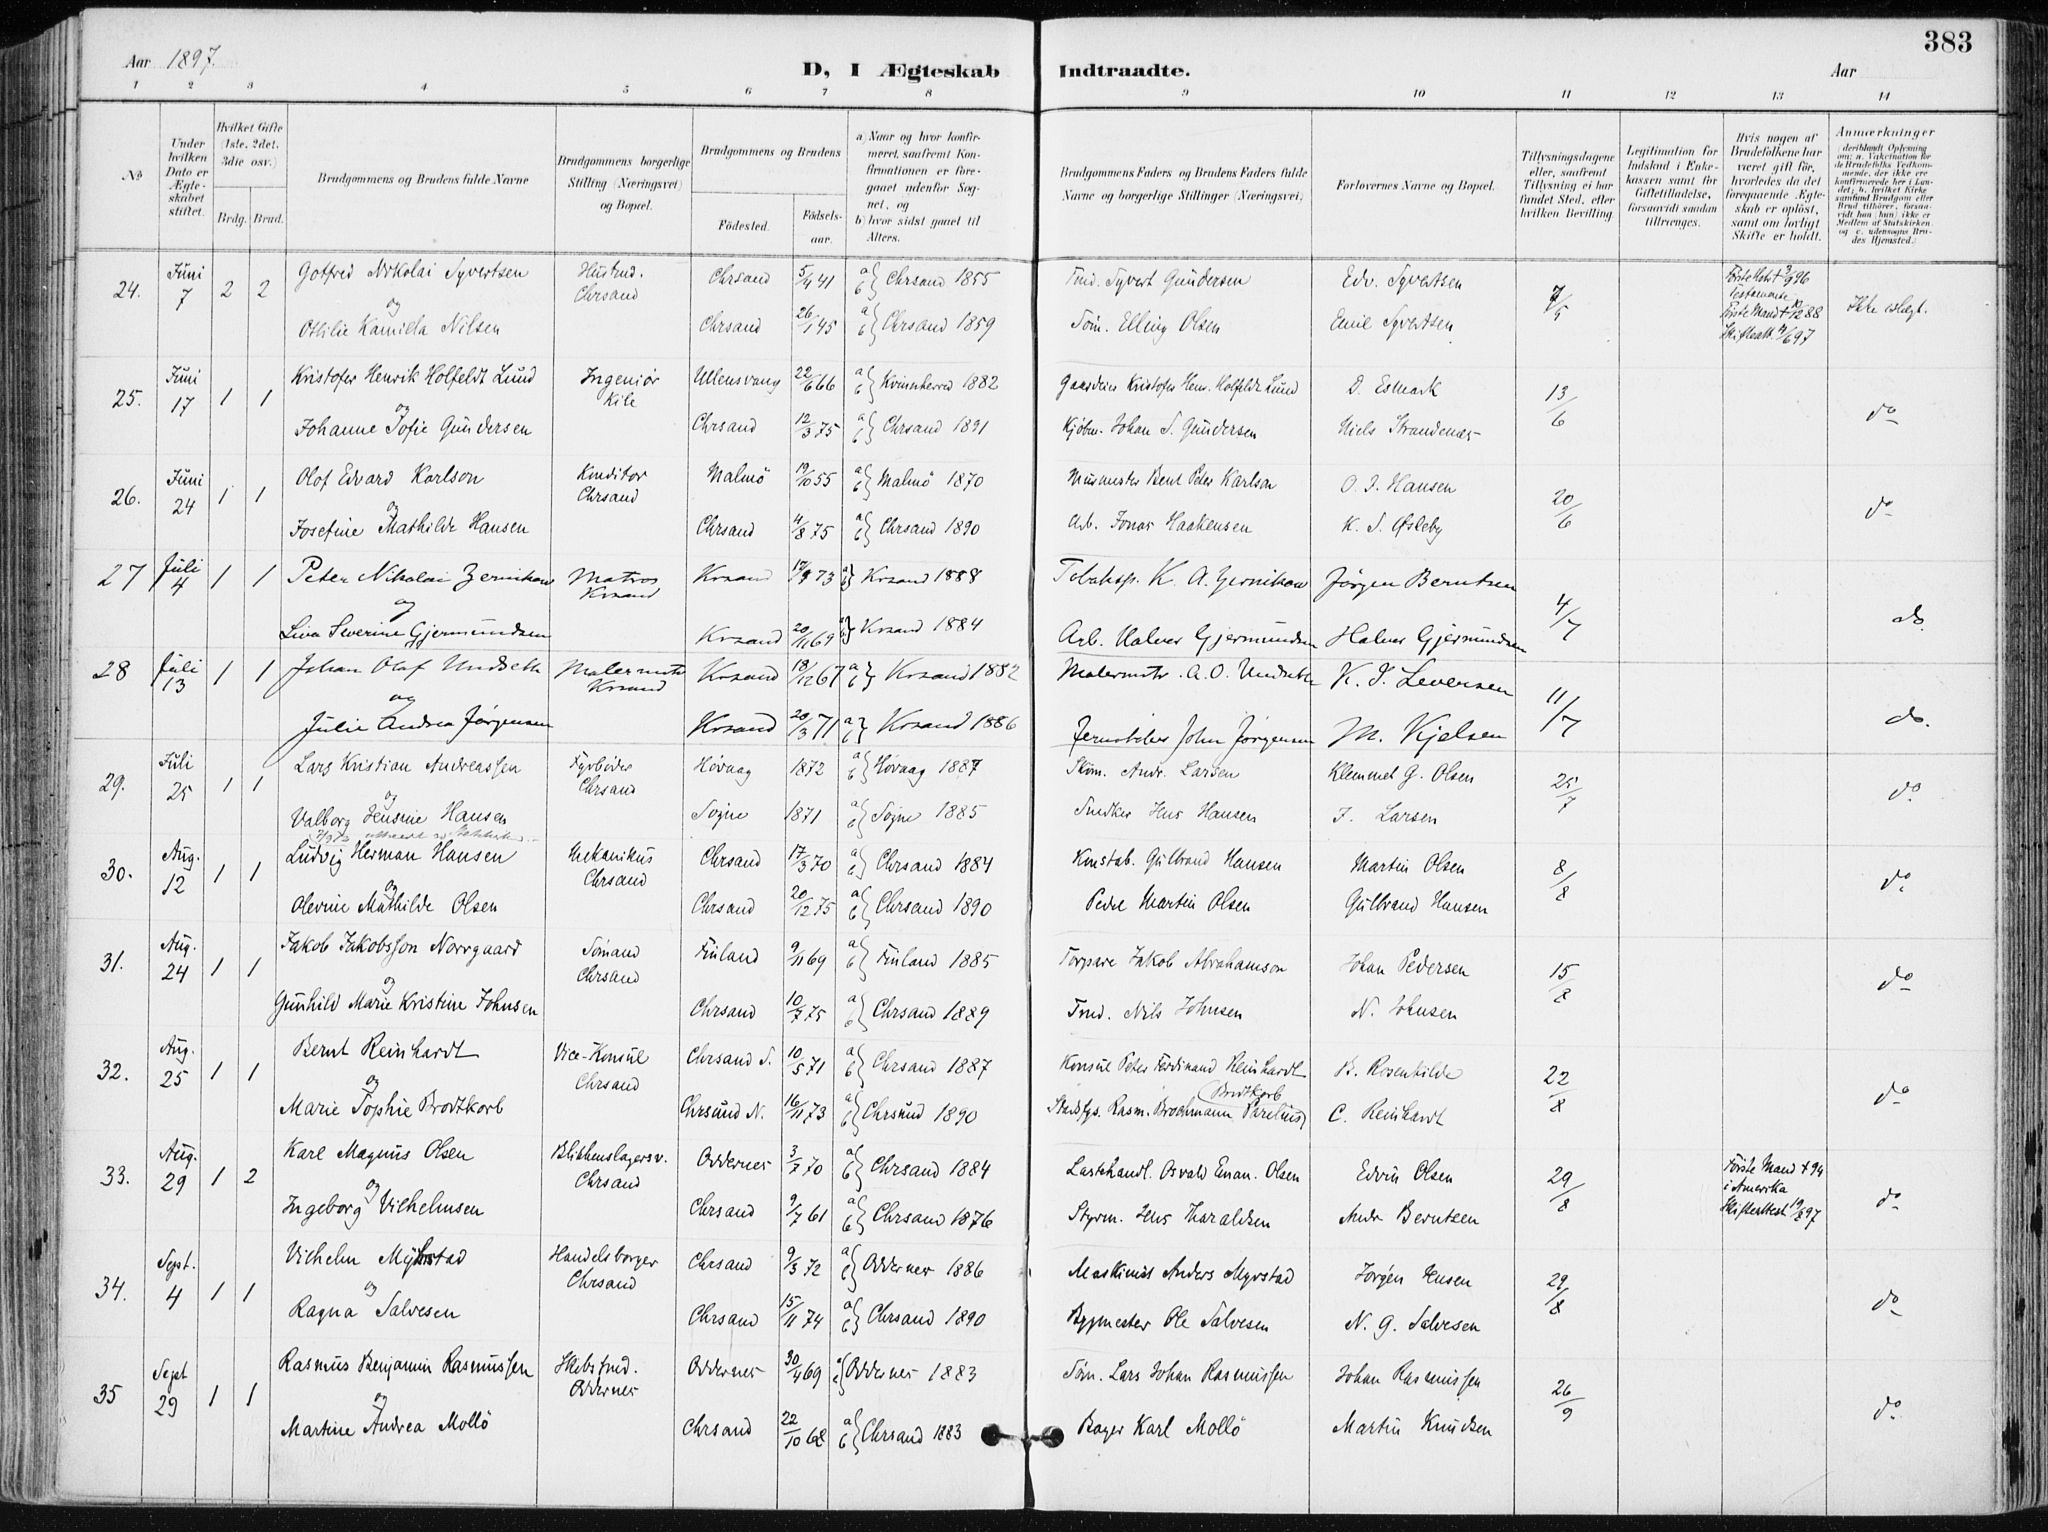 383
Aar 1897.
D, I Ægteskab Indtraadte.
Aar
1 2 3 4 5 6 7 8 9 10 11 12 13 14
No
Under hvilken Dato er Ægteskabet stiftet.
Hvilket Gifte (1ste, 2det, 3die osv.)
Brdg. Brud.
Brudgommens og Brudens fulde Navne
Brudgommens borgerlige Stilling (Næringsvei) og Bopæl.
Brudgommens og Brudens
Födested. Födsels-aar.
a) Naar og hvor konfirmeret, saafremt Konfirmationen er foregaaet udenfor Sognet, og
b) hvor sidst gaaet til Alters.
Brudgommens Faders og Brudens Faders fulde Navne og borgerlige Stillinger (Næringsvei)
Forlovernes Navne og Bopæl.
Tillysningsdagene eller, saafremt Tillysning ei har fundet Sted, efter hvilken Bevilling.
Legitimation for Indskud i Enkekassen samt for Giftetilladelse, forsaavidt saadan tiltrænges.
Hvis nogen af Brudefolkene har været gift før, hvorledes da det foregaaende Ægteskab er oplöst, samt om lovligt Skifte er holdt.
Anmerkninger
24. Juni 7 2 2 Gotfred Nikolai Syvertsen Chrsand Chrsand 5/4 41 a b Chrsand 1855 Syvert Gundersen Edv. Syvertsen 7/5 Ikke beslægt.
og
Othilie Kamilla Nilsen Chrsand 26/1 45 a b Chrsand 1859 Elling Olsen Emil Syvertsen
25. Juni 17 1 1 Kristofer Henrik Holfeldt Lund Ingeniør Kile Ullensvang 22/6 66 a b Kvinnherred 1882 Kristofer Hen. Holfeldt Lund D. Esmark 13/6 do
og
Johanne Sofie Gundersen Chrsand 12/3 75 a b Chrsand 1891 Kjøbm. Johan S. Gundersen Niels Strandenæs
26. Juni 24 1 1 Olof Edvard Karlson Konditor Chrsand Malmö 19/10 55 a b Malmö 1870 Murmester Bent Peter Karlson O. J. Hansen 20/6 do
og
Josefine Mathilde Hansen Chrsand 4/8 75 a b Chrsand 1890 Arb. Jonas Haakensen K. S. Øsleby
27 Juli 4 1 1 Peter Nikolai Zernikow Matros Krsand Krsand 73 Krsand 1888 K. A. Zernikow Jörgen Berntsen 4/7 do.
og
Lina Severine Gjermundsen Krsand 20/11 69 Krsand 1884 Arb. Halvor Gjermundsen Halvor Gjermundsen
28 Juli 13 1 1 Johan Olaf Undseth Malermstr Krsand Krsand 18/12 67 a b Krsand 1882 Malermstr. A. O. Undseth K. J. Leversen 11/7 do.
og
Julie Andrea Jørgensen Krsand 20/3 71 a b Krsand 1886 John Jørgensen M. Kjelsen
29. Juli 25 1 1 Lars Kristian Andreassen Fyrbøder Chrsand Høvaag 1872 a b Høvaag 1887 Skom. Andr. Larsen Klemmet G. Olsen 25/7 do
og
Valborg Jensine Hansen Sogne 1871 a b Sogne 1885 Snedker Jens Hansen J. Larsen
30. Aug. 12 1 1 Ludvig Herman Hansen Mekanikus Chrsand Chrsand 17/3 70 a b Chrsand 1884 Konstab. Gulbrand Hansen Martin Olsen 8/8 do
og
Olevine Mathilde Olsen Chrsand 20/12 75 a b Chrsand 1890 Peder Martin Olsen Gulbrand Hansen
31. Aug. 24 1 1 Jakob Jakobsson Norrgaard Sömand Chrsand Finland 9/11 69 a b Finland 1885 Torpare Jakob Abrahamson Johan Pedersen 15/8 do
og
Gunhild Marie Kristine Johnsen Chrsand 10/7 75 a b Chrsand 1889 Nils Johnsen N. Johnsen
32. Aug. 25 1 1 Bernt Reinhardt Vice-Konsul Chrsand Chrsand S. 10/5 71 a b Chrsand 1887 Konsul Peter Ferdinand Reinhardt B. Rosenkilde 22/8 do
og Brodtkorb
Marie Sophie Brodtkorb Chrsund N. 16/11 73 a b Chrsund 1890 Rasm. Brochmann Parelius C. Reinhardt
33. Aug. 29 1 2 Karl Magnus Olsen Blikkenslagersv. Chrsand Oddernes 3/7 70 a b Chrsand 1884 Osvald Eman. Olsen Edvin Olsen 29/8 Første Mand † 94 i Amerika Skifteattest 19/8 97 do
og
Ingeborg Vilhelmsen Chrsand 9/7 61 a b Chrsand 1876 Styrm. Jens Haraldsen Andr Berntsen
34. Sept. 4 1 1 Vilhelm Myhrstad Handelsborger Chrsand Chrsand 9/3 72 a b Oddernes 1886 Maskinist Anders Myrstad Jørgen Jensen 29/8 do
og
Ragna Salvesen Chrsand 15/11 74 a b Chrsand 1890 Bygmester Ole Salvesen N. G. Salvesen
35 Sept 29 1 1 Rasmus Benjamin Rasmussen Oddernes Oddernes 30/4 69 Oddernes 1883 Lars Johan Rasmussen Johan Rasmussen 26/9 do
og
Martine Andrea Mollö Chrsand 22/10 62 a b Chrsand 1883 Bager Karl Mollö Martin Knudsen